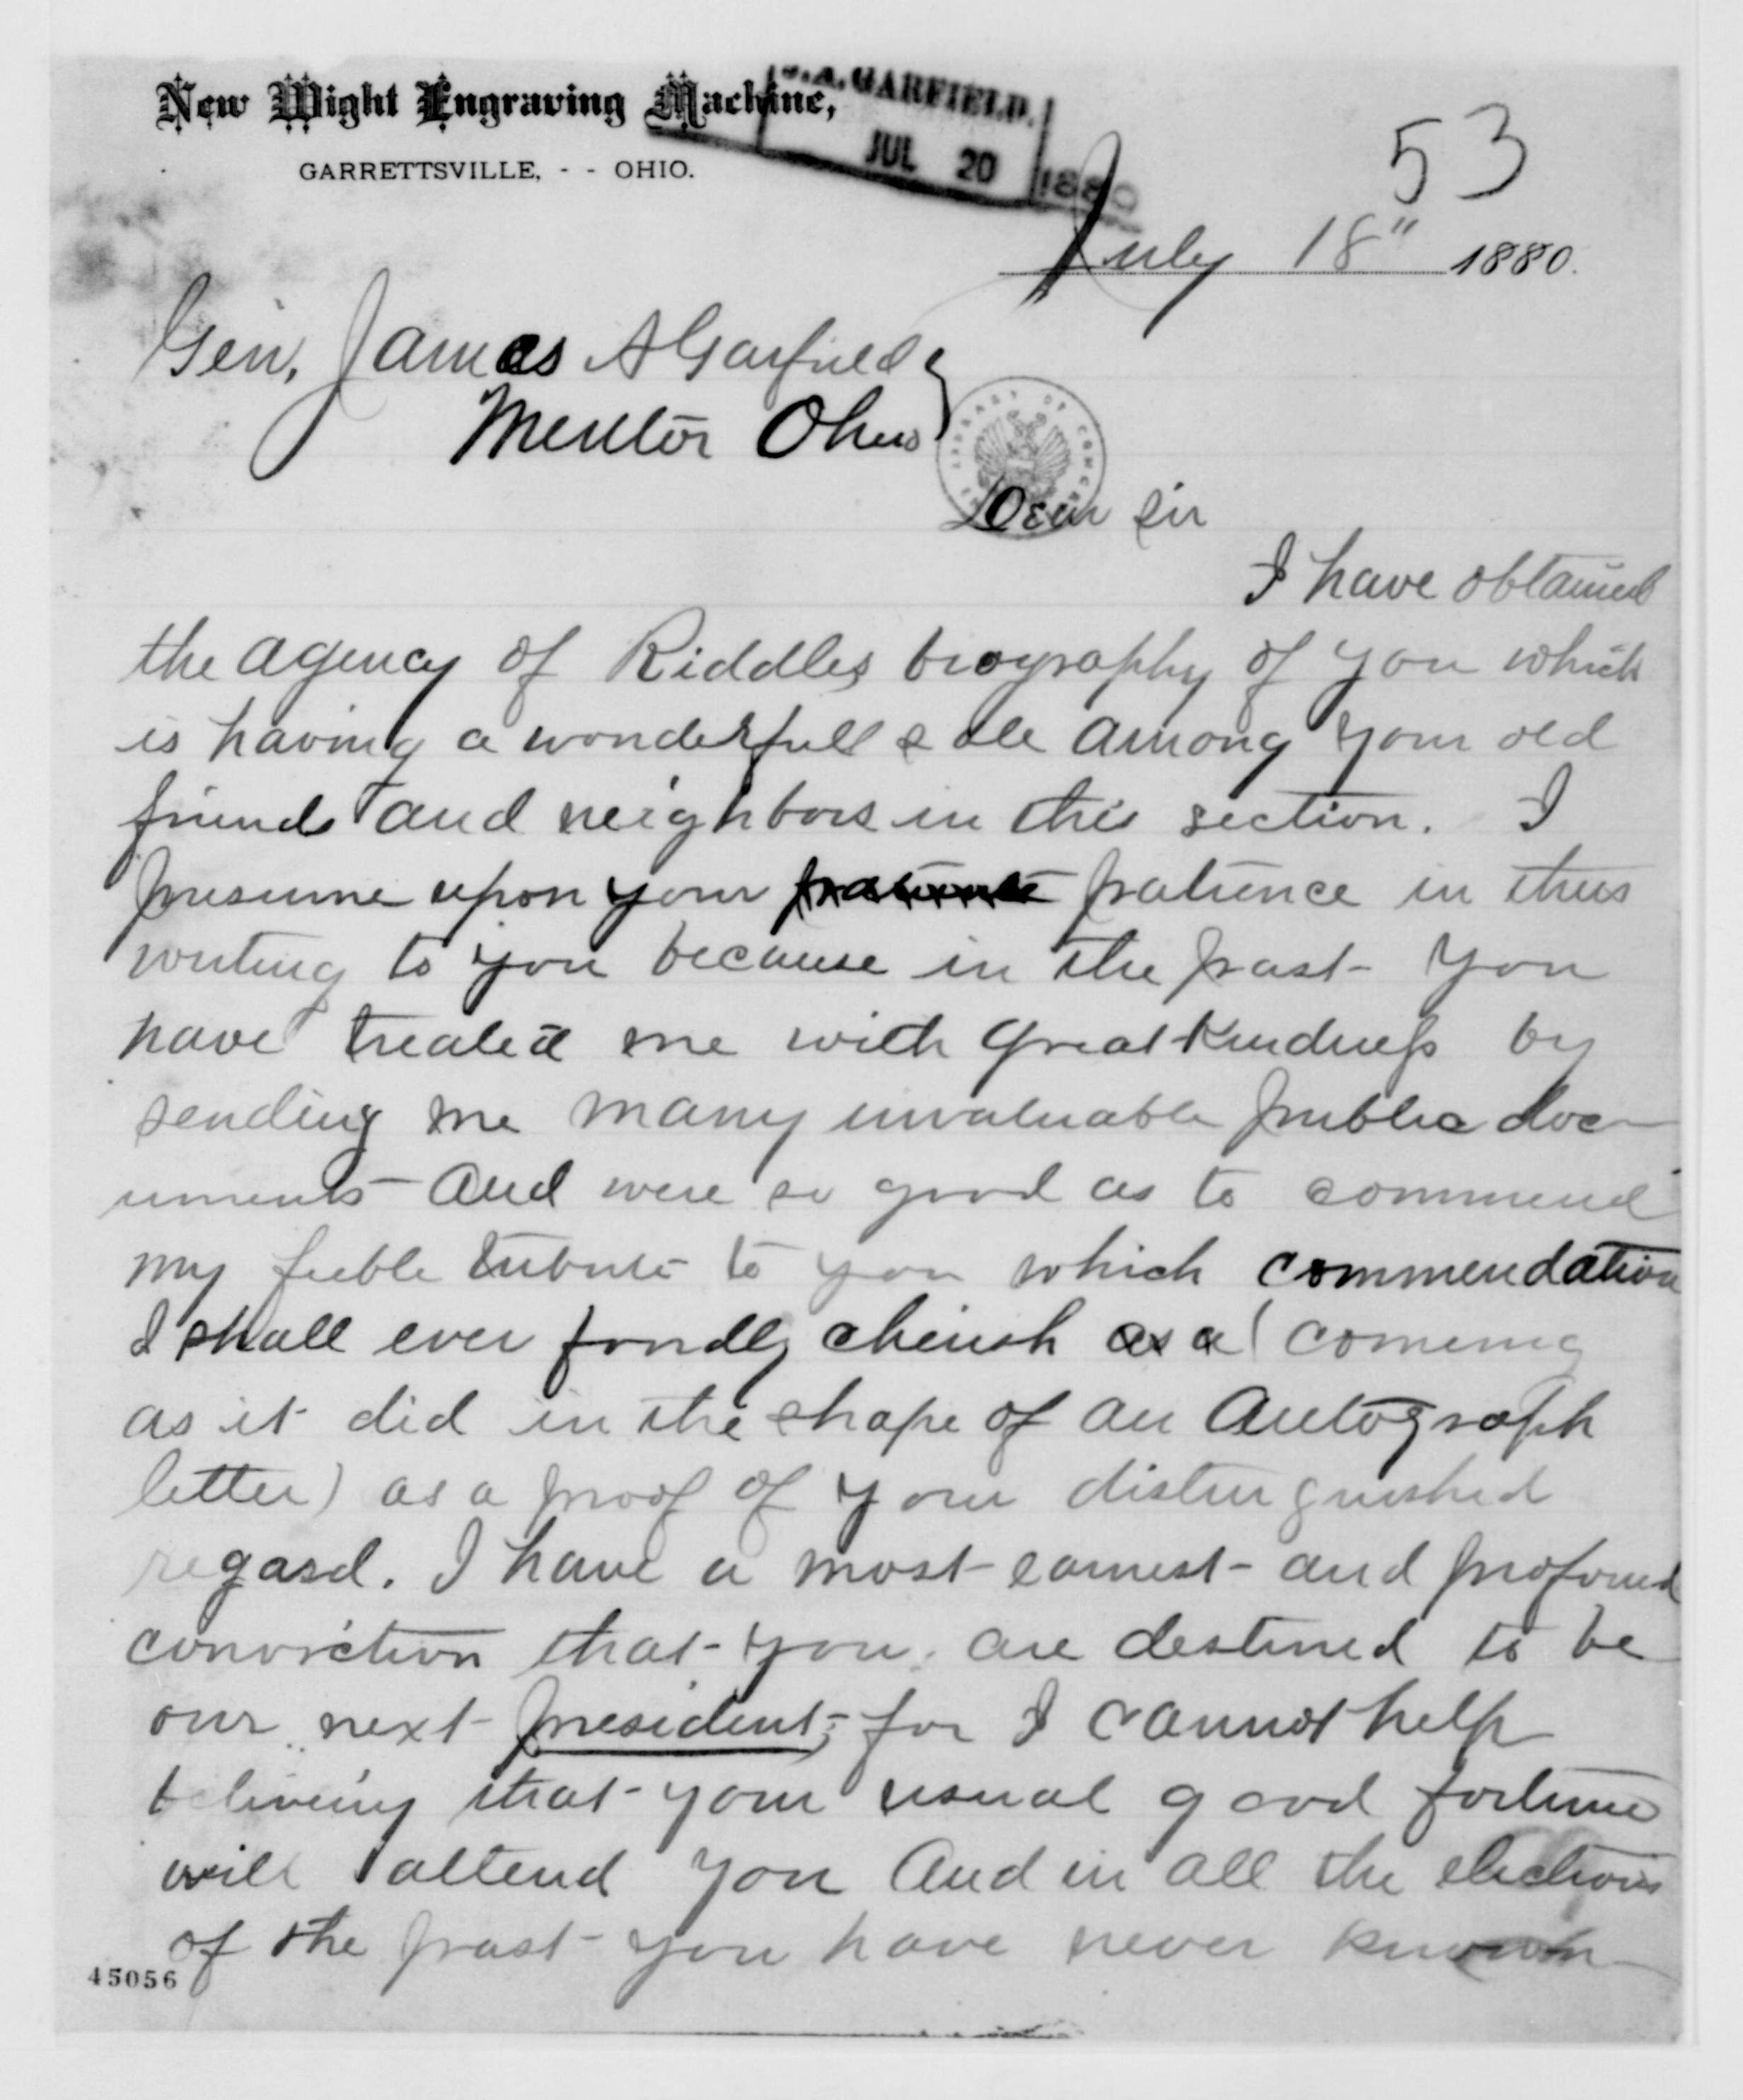 New Wight Engraving Machine,
GARRETTSVILLE, - - OHIO.
J.A. GARFIELD.
JUL 20 1880
53
July 18" 1880.
Gen, James A Garfield
Mentor Ohio
LIBRARY OF CONGRESS
Dear Sir
I have obtained
the agency of Riddles biography of you which
is having a wonderfull sale among your old
friends and neighbors in this section. I
presume upon your patience in thus
writing to you because in the past you
have treated me with great kindness by
sending me many invaluable public doc-
uments and were so good as to commend
my feeble tribute to you which commendation
I shall ever fondly cherish as a (coming
as it did in the shape of an Autograph
letter) as a proof of your distinguished
regard. I have a most earnest and profound
conviction that you are destined to be
our next president, for I cannot help
believing that your usual good fortune
will attend you and in all the elections
of the past you have never known
45056